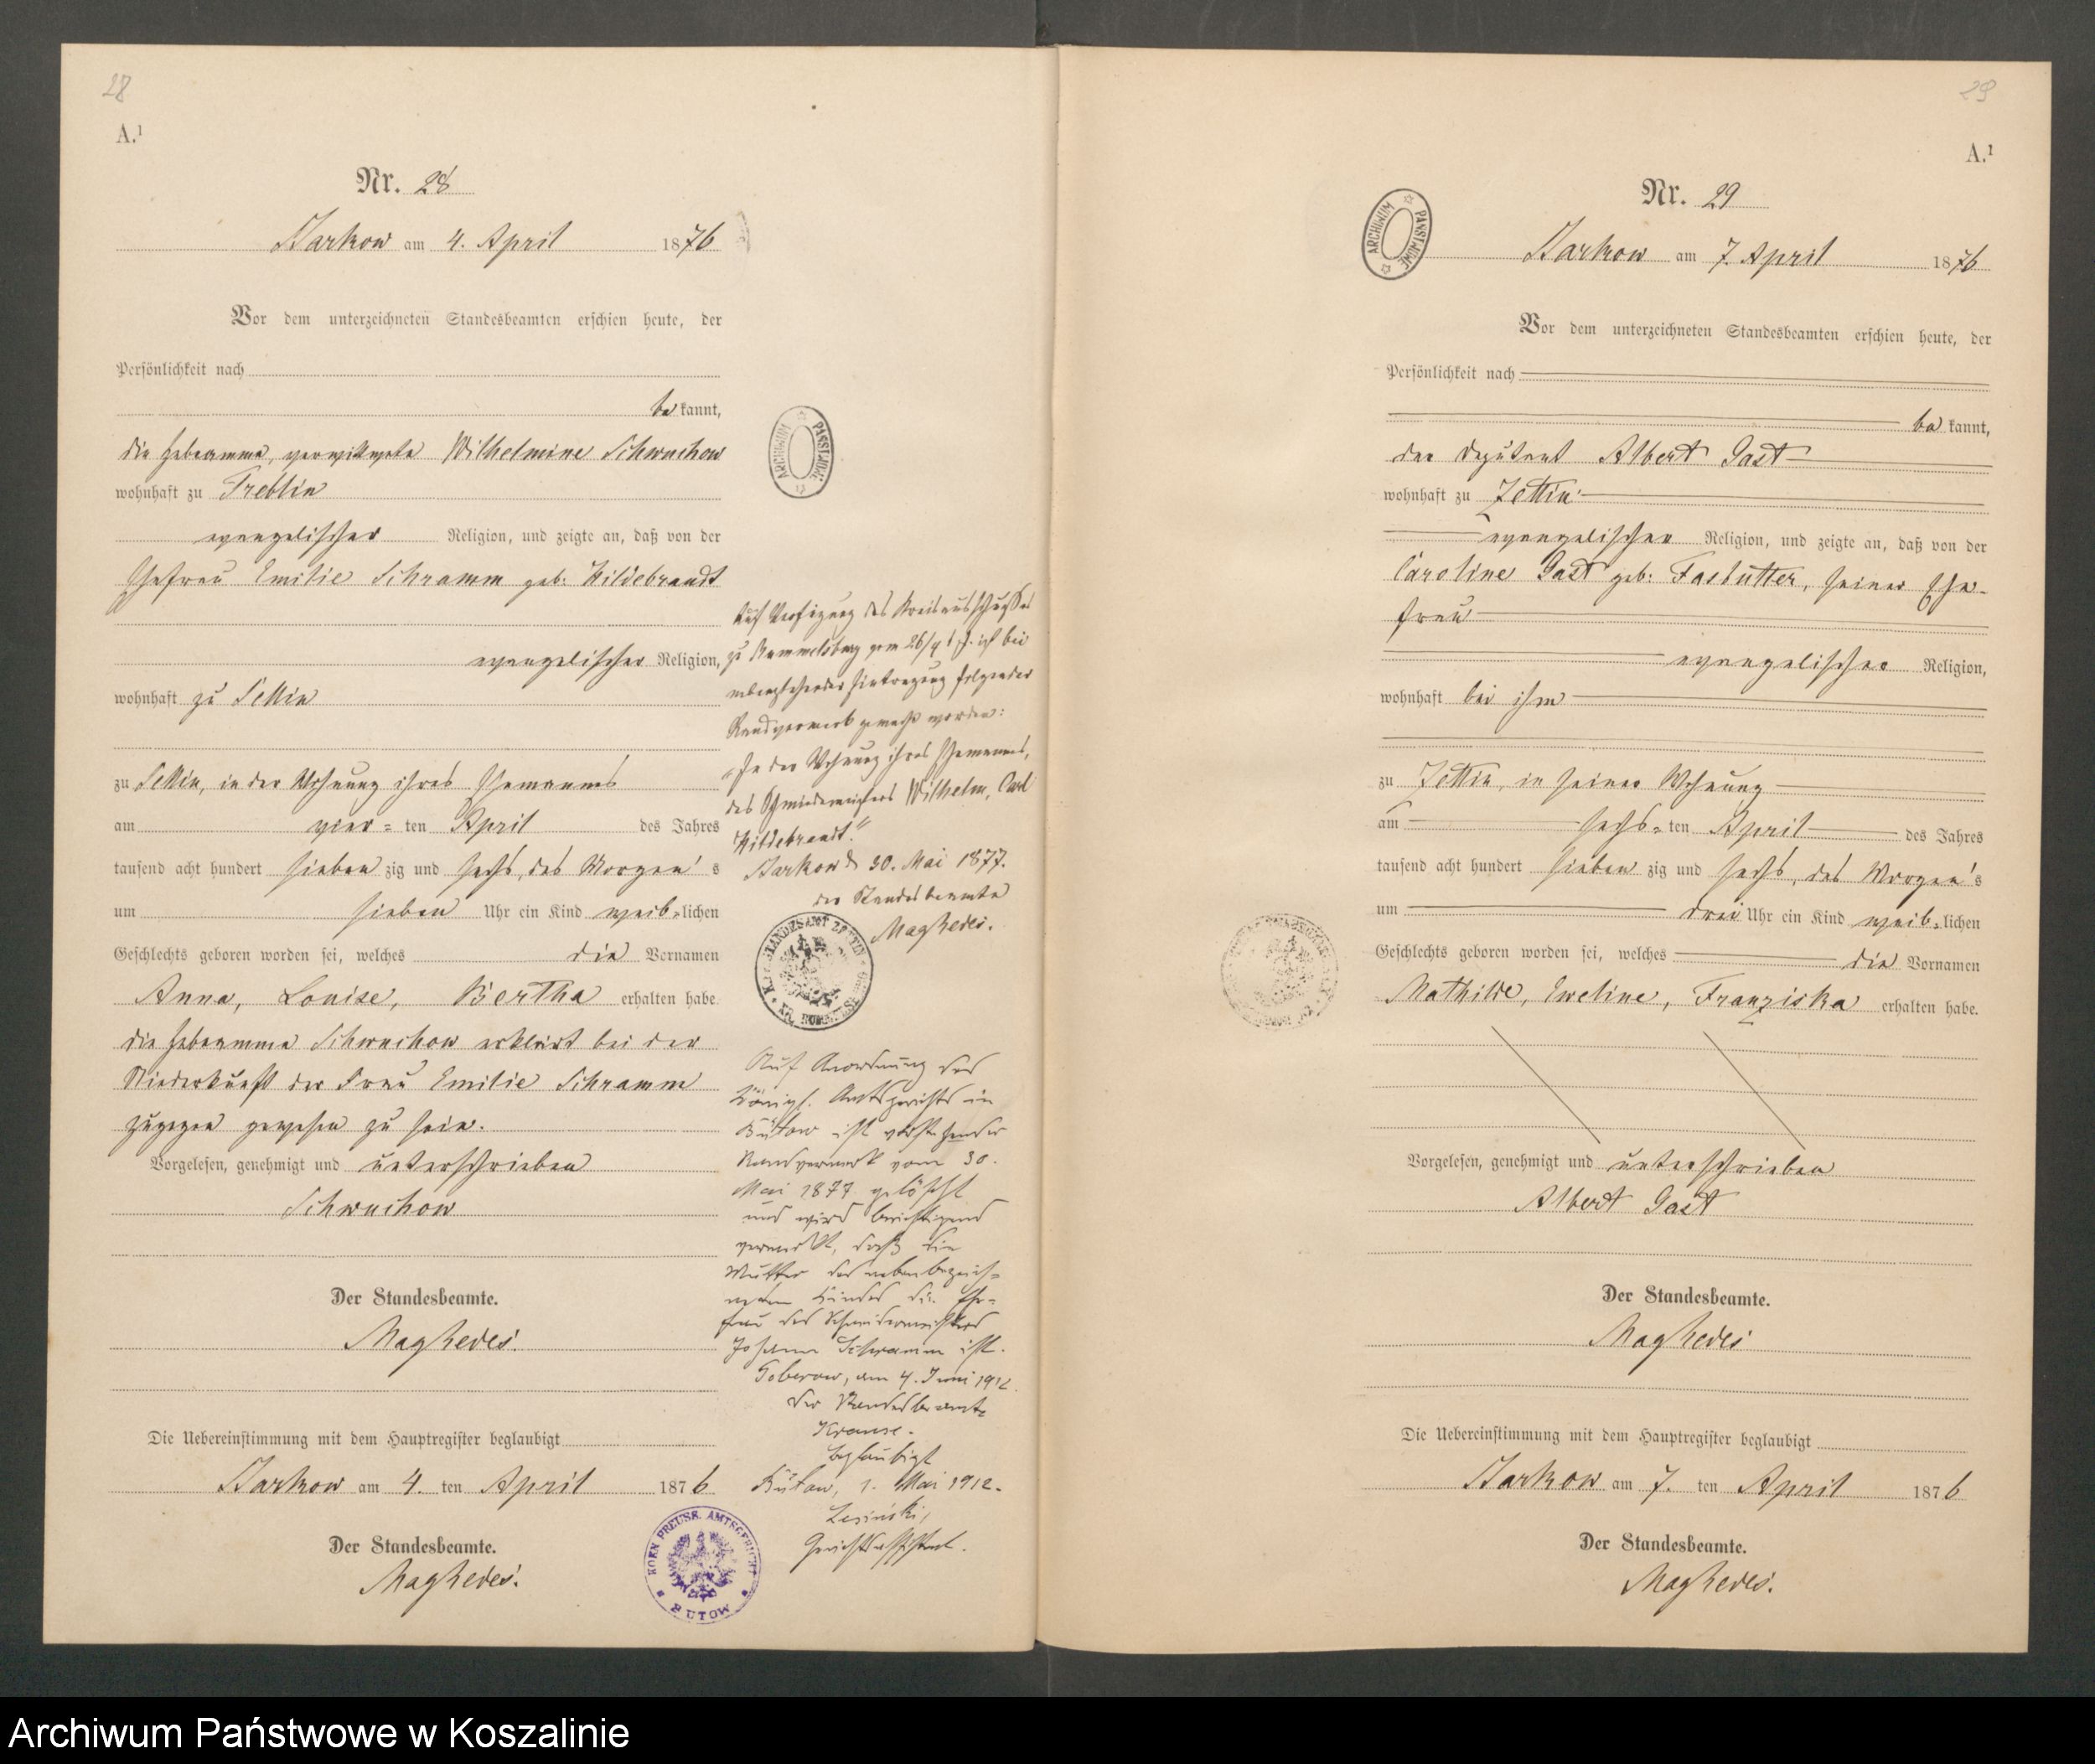 28
A.¹
Nr. 28
Barkow am 4. April 1876
Vor dem unterzeichneten Standesbeamten erschien heute, der
Persönlichkeit nach
be kannt,
die Hebeamme, verwittwete Wilhelmine Schwuchow
wohnhaft zu Treblin
evangelischer Religion, und zeigte an, daß von der
Ehefrau Emilie Schramm geb: Hildebrandt
evangelischer Religion,
wohnhaft zu Settin
zu Settin, in der Wohnung ihres Ehemannes
am vier = ten April des Jahres
tausend acht hundert sieben zig und sechs, des Morgen's s
um sieben Uhr ein Kind weib=lichen
Geschlechts geboren worden sei, welches die Vornamen
Anna, Louise, Bertha erhalten habe
die Hebeamme Schwuchow erklärt bei der
Niederkunft der Frau Emilie Schramm
zugegen gewesen zu sein.
Vorgelesen, genehmigt und unterschrieben
Schwuchow
Der Standesbeamte.
Maghedei.
Die Uebereinstimmung mit dem Hauptregister beglaubigt
Barkow am 4. ten April 1876
Der Standesbeamte.
Maghedei.
ARCHIWUM PAŃSTWOWE
Auf Verfügung des Kreisausschusses
zu Rummelsburg vom 26/4 ist bei
nebenstehender Eintragung folgender
Randvermerk gemacht worden:
"In der Wohnung ihres Ehemannes,
des Schmiedemeisters Wilhelm, Carl
Hildebrandt."
Barkow d 30. Mai 1877.
der Standesbeamte
Maghedei.
Auf Anordnung des
Königl. Amtsgerichts in
Bütow ist vorstehender
Randvermerk vom 30.
Mai 1877 gelöscht
und wird berichtigend
vermerkt, daß die
Mutter des nebenbezeich=
neten Kindes die Ehe=
frau des Schneidermeisters
Johann Schramm ist.
am 4. Juni 1912.
Der Standesbeamte
Krause.
beglaubigt
Bütow, 1. Mai 1912.
Lesinski,
Gerichtsassistent.
KOEN. PREUSS. AMTSGERICHT
BUTOW
29
A.¹
ARCHIWUM PAŃSTWOWE
Nr. 29
Barkow am 7. April 1876
Vor dem unterzeichneten Standesbeamten erschien heute, der
Persönlichkeit nach
be kannt,
der Deputant Albert Gast
wohnhaft zu Zettin
evangelischer Religion, und zeigte an, daß von der
Caroline Gast geb: Fasbutter, seiner Ehe-
frau
evangelischer Religion,
wohnhaft bei ihm
zu Zettin, in seiner Wohnung
am sechs=ten April des Jahres
tausend acht hundert sieben zig und sechs, des Morgen's
um drei Uhr ein Kind weib=lichen
Geschlechts geboren worden sei, welches die Vornamen
Mathilde, Eweline, Franziska erhalten habe.
Vorgelesen, genehmigt und unterschrieben
Albert Gast
Der Standesbeamte.
Maghedei
Die Uebereinstimmung mit dem Hauptregister beglaubigt
Barkow am 7. ten April 1876
Der Standesbeamte.
Maghedei.
Archiwum Państwowe w Koszalinie